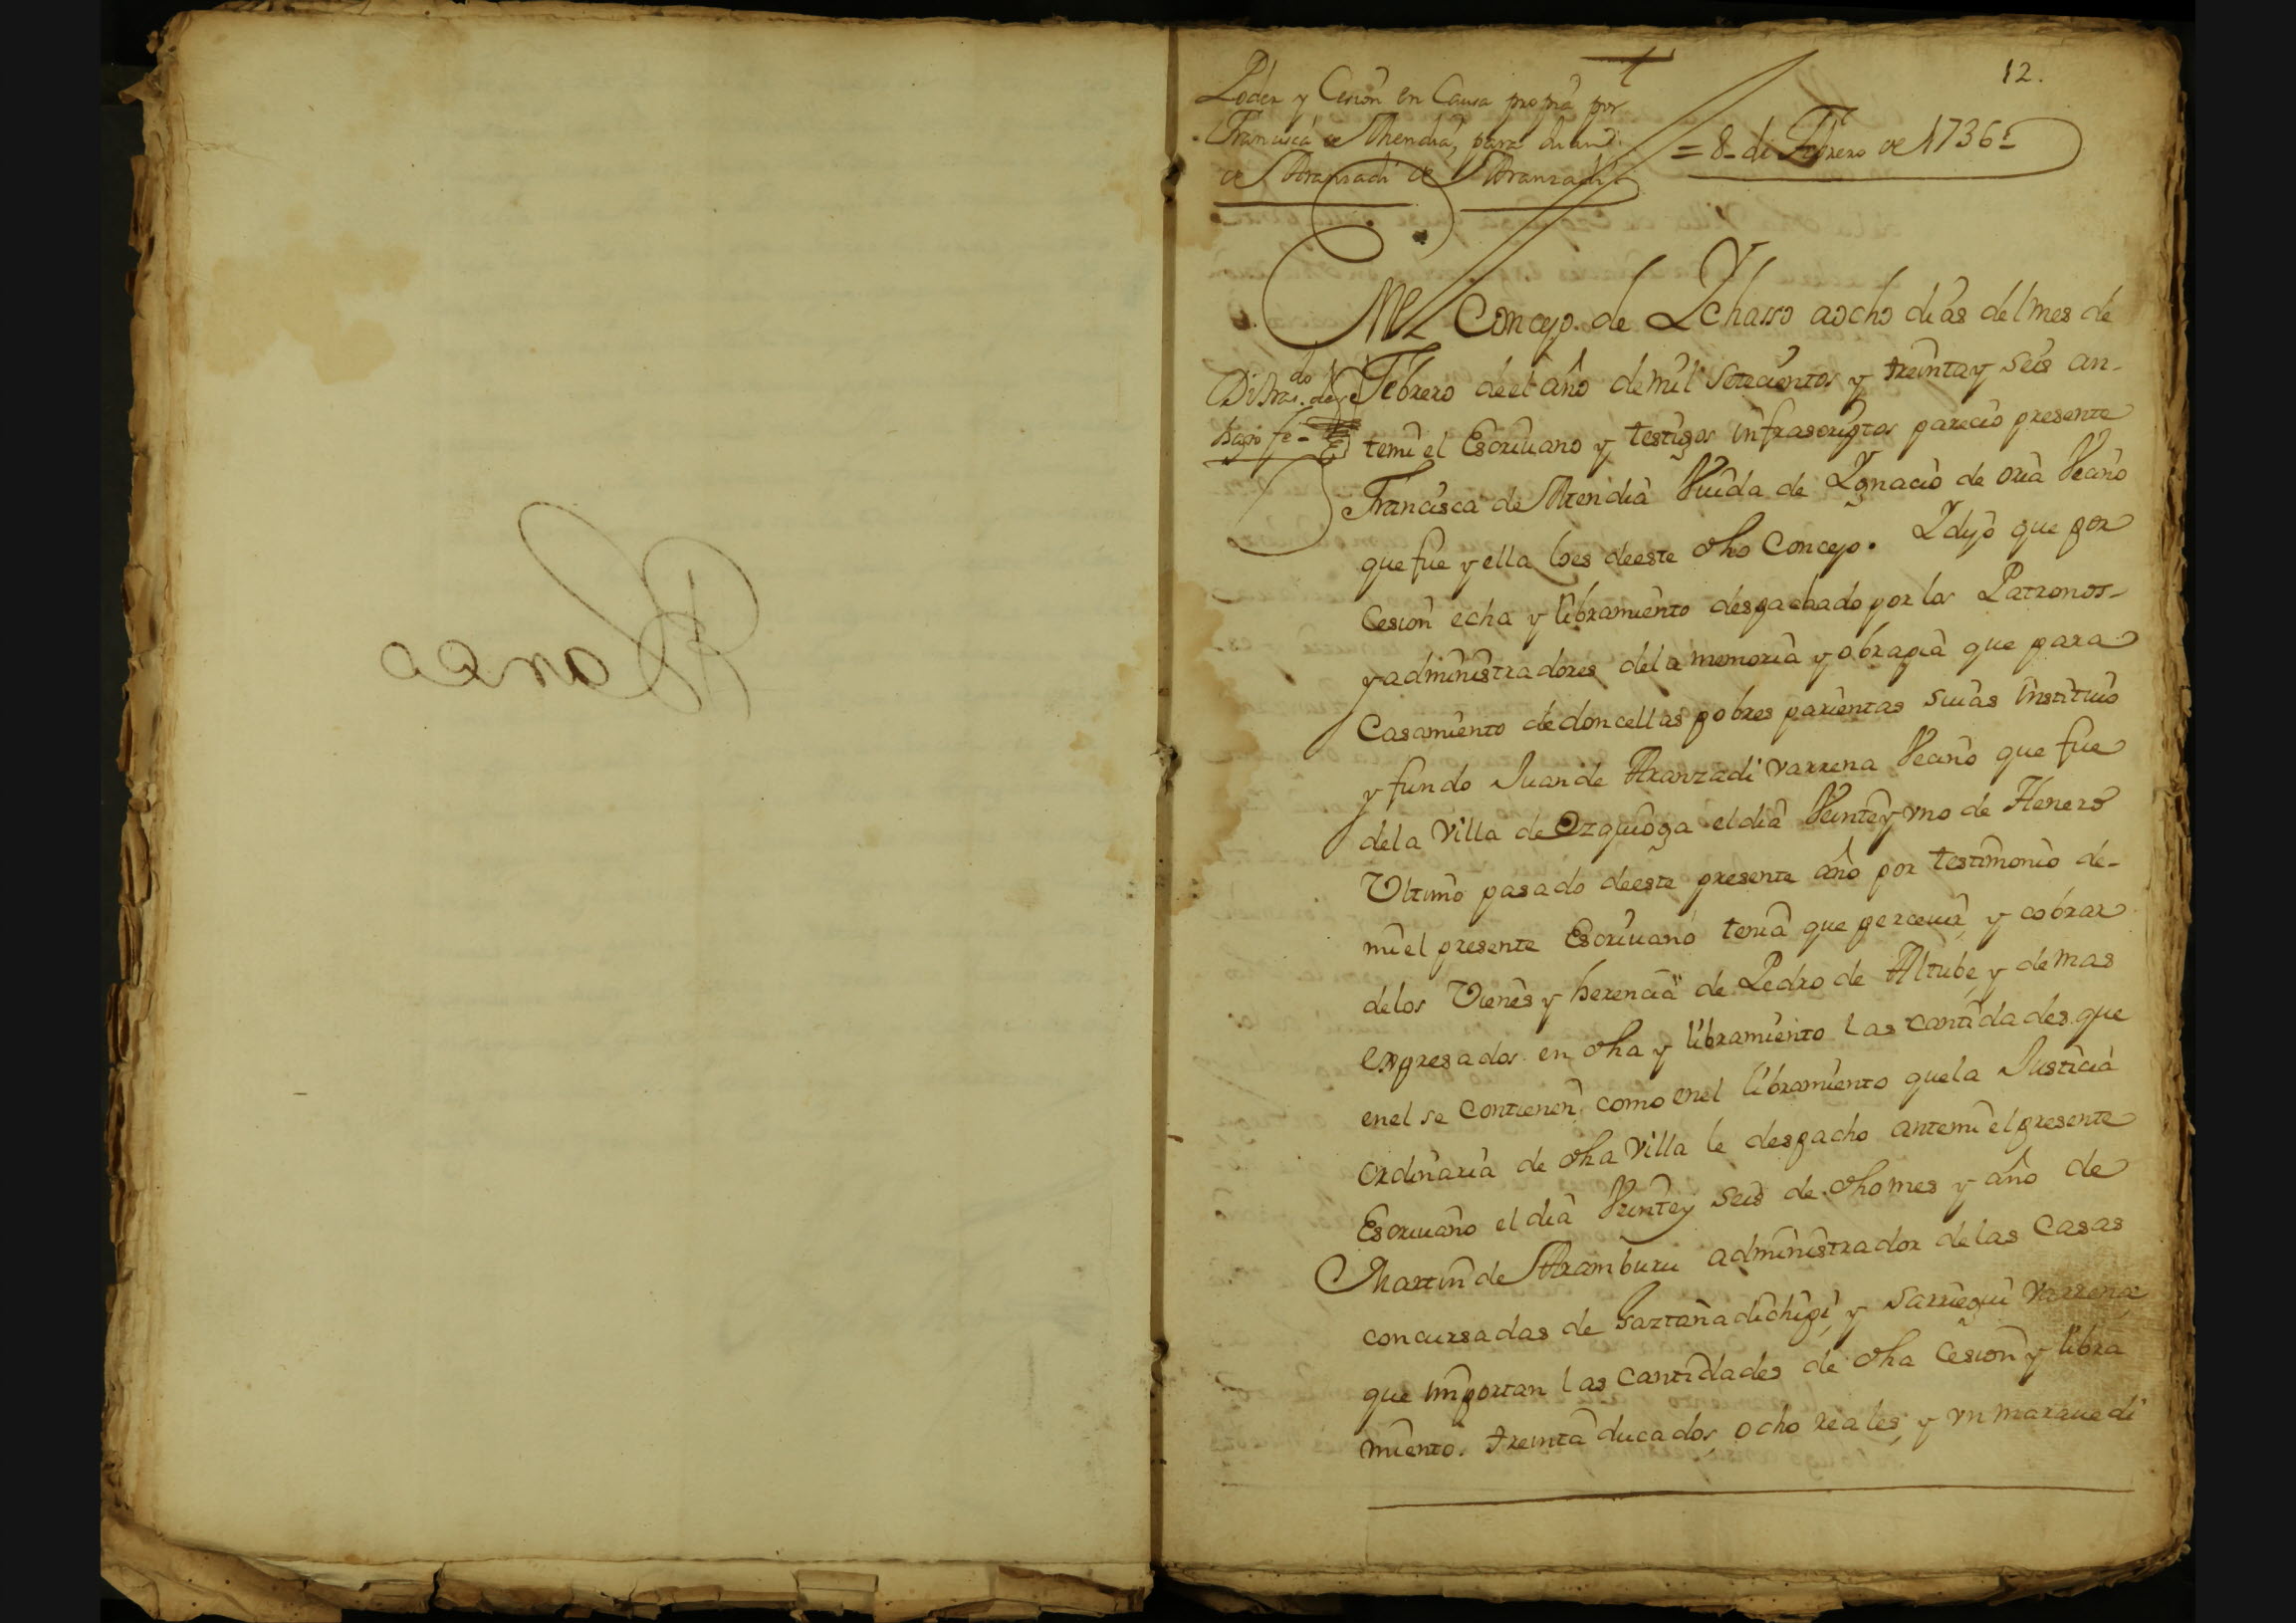 12.
Poder y Cesion en Causa propia por
Francisca de Mendia, para Juan
de Aranzadi de Aranzadi
= 8 - de Febrero de 1736 =
Concejo de Ychasso a ocho dias del mes de
Febrero de el año de mil setecientos y treinta y seis an-
temi el Escriuano y testigos infrascriptos parecio presente
Francisca de Mendia Viuda de Ygnacio de oria Vecino
que fue y ella lo es de este dho Concejo. Y dijo que por
Cesion echa y libramiento despachado por los Patronos
y administradores de la memoria y obrapia que para
Casamiento de doncellas pobres parientas suias instituio
y fundo Juan de Aranzadi varrena Vecino que fue
de la Villa de Ezquioga el dia Veinte y vno de Henero
Vltimo pasado de este presente año por testimonio de-
mi el presente Escriuano tenia que perceuir, y cobrar
de los Vienes y herencia de Pedro de Altube, y demas
expresados en dha y libramiento las cantidades que
en el se contienen, como en el libramiento que la Justicia
ordinaria de dha Villa le despacho antemi el presente
Escriuano el dia Veinte y seis de dho mes y año de
Martin de Aramburu administrador de las Casas
concursadas de y sarriegui varrena
que importan las cantidades de dha Cesion y libra
miento. treinta ducados, ocho reales, y vn marauedi